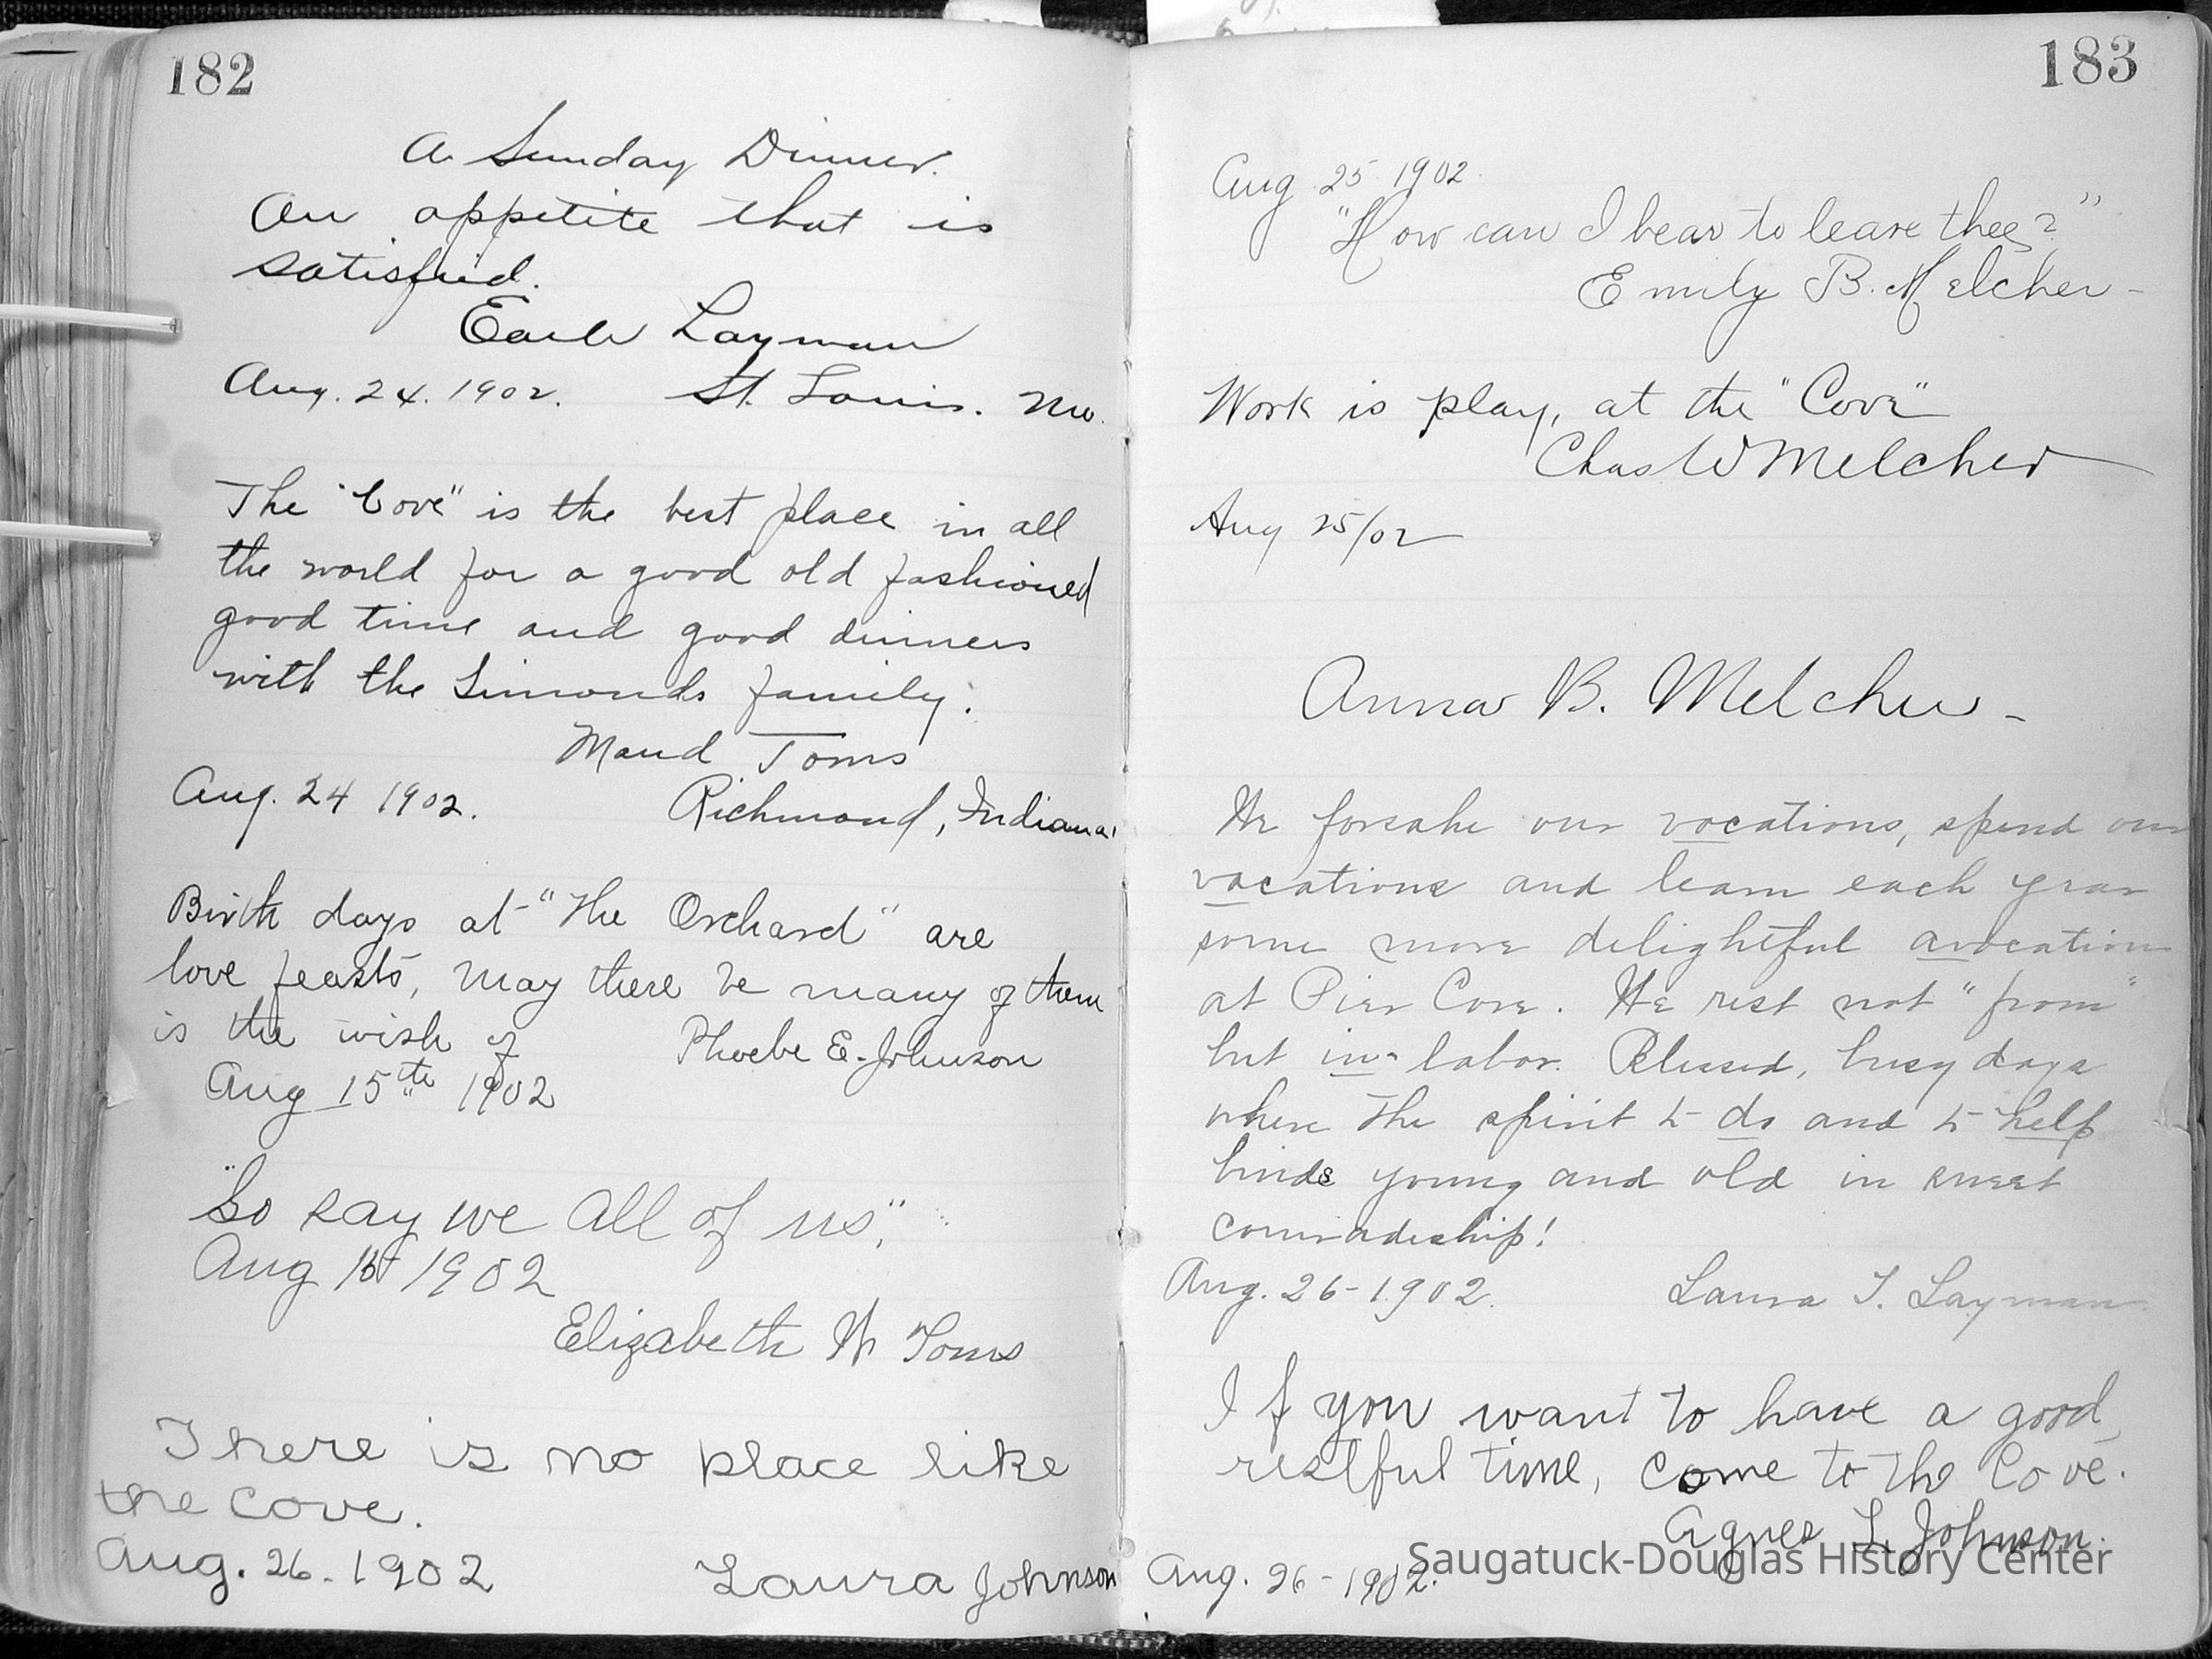 182
A Sunday Dinner.
An appetite that is
satisfied.
Earle Layman
Aug. 24. 1902. St. Louis. Mo.
The "Cove" is the best place in all
the world for a good old fashioned
good time and good dinners
with the Simonds family.
Maud Toms
Aug. 24 1902. Richmond, Indiana.
Birth days at "The Orchard" are
love feasts, May there be many of them
is the wish of Phoebe E. Johnson
Aug 15th 1902
"So say we all of us,"
Aug 1902
Elizabeth W Toms
There is no place like
the cove.
Aug. 26. 1902 Laura Johnson
183
Aug 25 1902.
"How can I bear to leave thee?"
Emily B. Melcher -
Work is play, at the "Cove"
Chas W Melcher
Aug 25/02
Anna B. Melcher -
We forsake our vocations, spend our
vacations and learn each year
some more delightful avocation
at Pier Cove. We rest not "from"
but in labor. Blessed, busy days
where the spirit to do and to help
binds young and old in sweet
comradeship!
Aug. 26 - 1902. Laura T. Layman
If you want to have a good,
restful time, come to the Cove.
Agnes L. Johnson.
Aug. 26 - 1902.
Saugatuck-Douglas History Center